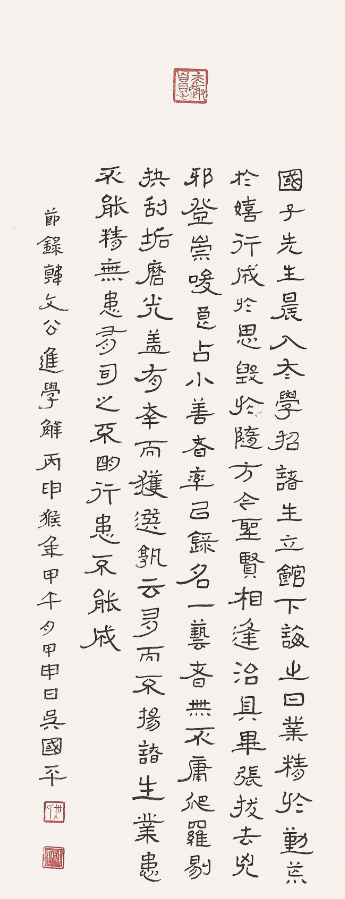 國子先生晨入太學招諸生立館下誨之曰業精於勤荒
於嬉行成於思毀於隨方今聖賢相逢治具畢張拔去兇
邪登崇畯良占小善者率㠯錄名一藝者無不庸爬羅剔
抉刮垢磨光蓋有幸而獲選孰云多而不揚諸生業患
不能精無患有司之不明行患不能成
節錄韓文公進學解丙申猴年甲午月甲申日吳國平